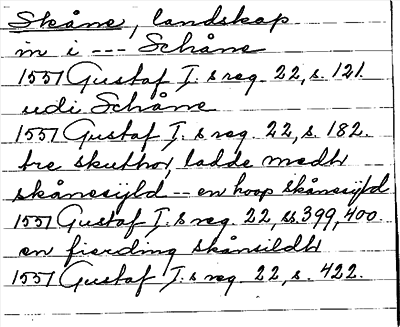 Skåne, landskap
in i --- Schåne
1551 Gustaf I:s reg. 22, s. 121.
udi Schåne
1551 Gustaf I:s reg. 22, s. 182.
tre skuthor, ladde medh
skånesijld -- en hoop skånesijld
1551 Gustaf I:s reg. 22, ss. 399, 400.
en fierding skånsildh
1551 Gustaf I:s reg. 22, s. 422.